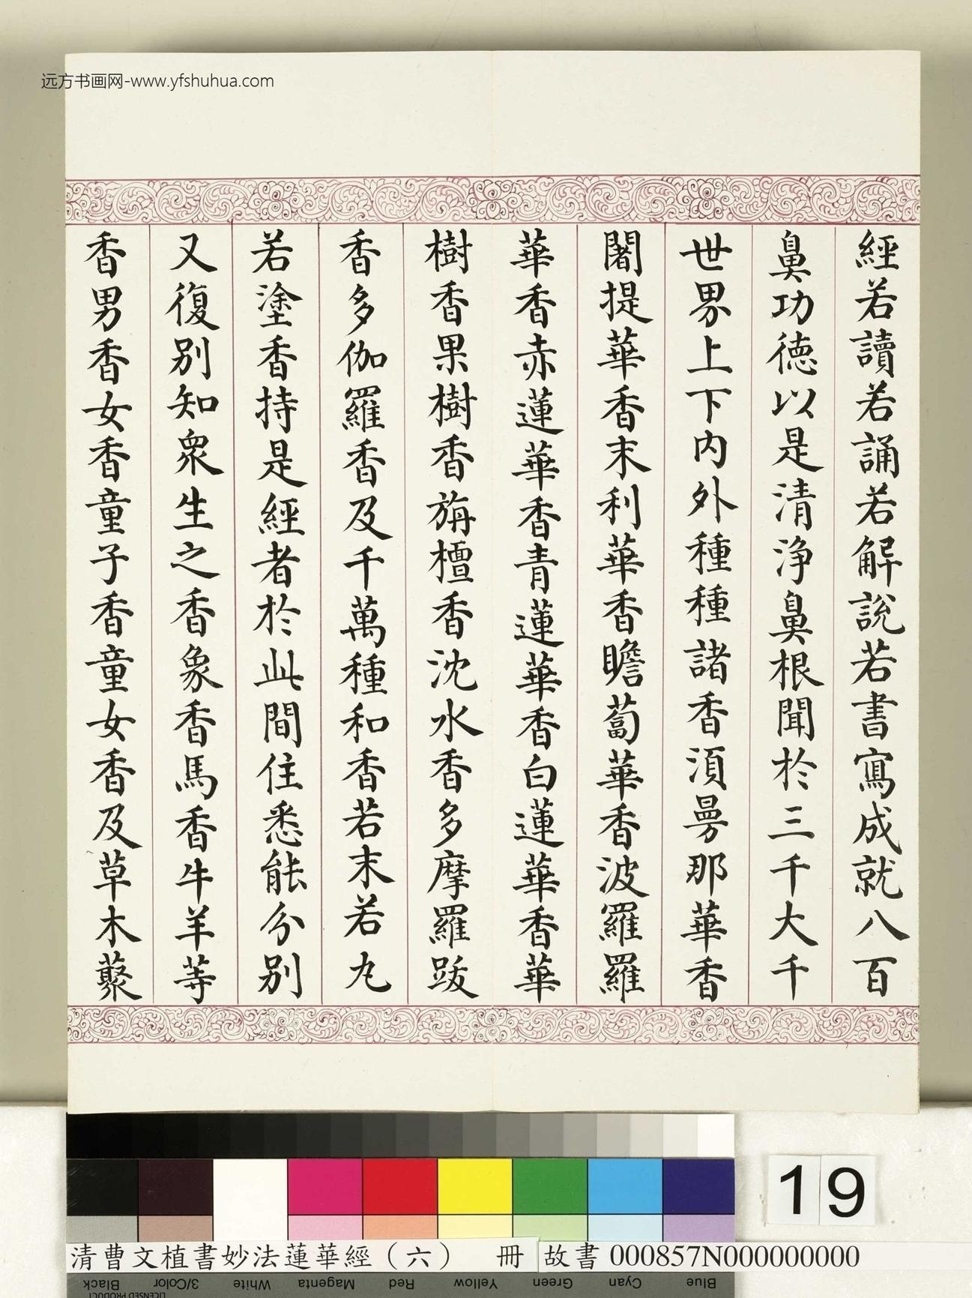 远方书画网-www.yfshuhua.com
經若讀若誦若解說若書寫成就八百
鼻功德以是清淨鼻根聞於三千大千
世界上下內外種種諸香須曼那華香
闍提華香末利華香瞻蔔華香波羅羅
華香赤蓮華香青蓮華香白蓮華香華
樹香果樹香旃檀香沈水香多摩羅跋
香多伽羅香及千萬種和香若末若丸
若塗香持是經者於此間住悉能分別
又復別知眾生之香象香馬香牛羊等
香男香女香童子香童女香及草木藂
19
清曹文植書妙法蓮華經（六） 冊 故書 000857N000000000
Black 3/Color White Magenta Red Yellow Green Cyan Blue
LICENSED PRODUCT